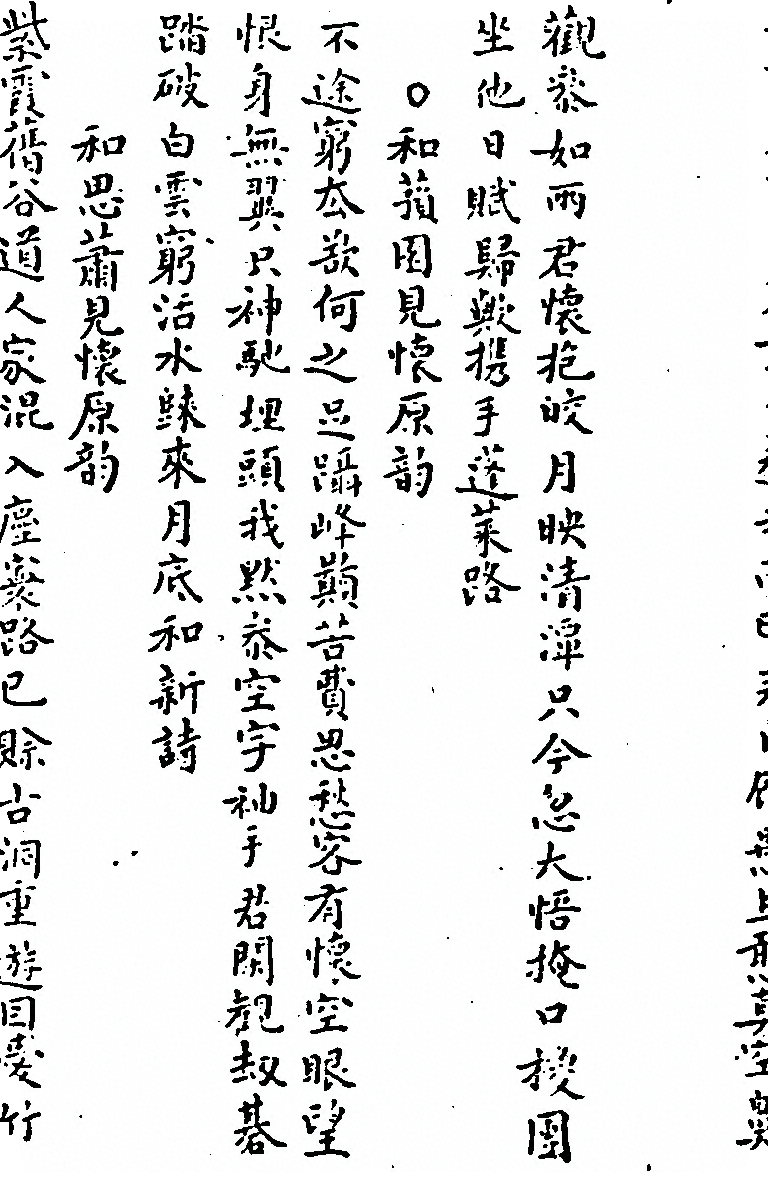 觀參如雨君懷抱皎月映清潭只今忽大悟掩口換團
坐他日賦歸歟携手蓬萊路
○和蘋園見懷原韵
不途窮太歎何之足躡峰巔苦費思愁客有懷空眼望
恨身無翼只神馳埋頭我默參空字袖手君閑觀刼碁
踏破白雲窮活水歸來月底和新詩
和思蕭見懷原韵
紫霞舊谷道人家混入塵寰路已賒古洞重遊因愛竹